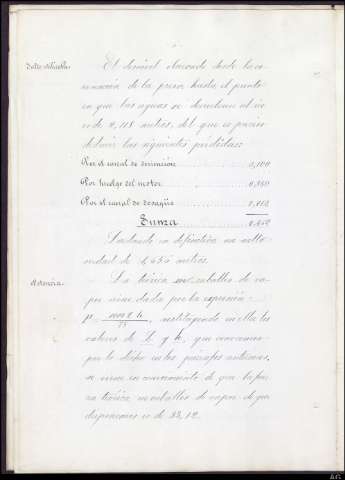 Salto utilizable.
El desnivel obtenido desde la co-
ronación de la presa hasta el punto
en que las aguas se devuelven al río
es de 2,118 metros, del que es preciso
deducir las siguientes pérdidas:
Por el canal de derivación 0,100
Por huelgo del motor
Por el canal de desagüe
Suma
Quedando en definitiva un salto
de metros.
Potencia.
La teórica en caballos de va-
por viene dada por la expresión
P = 1000 Q h / 75, sustituyendo en ella los
valores de Q y h, que conocemos
por lo dicho en los párrafos anteriores,
se viene en conocimiento de que la fuer-
za teórica en caballos de vapor de que
disponemos es de 33,12.
AG